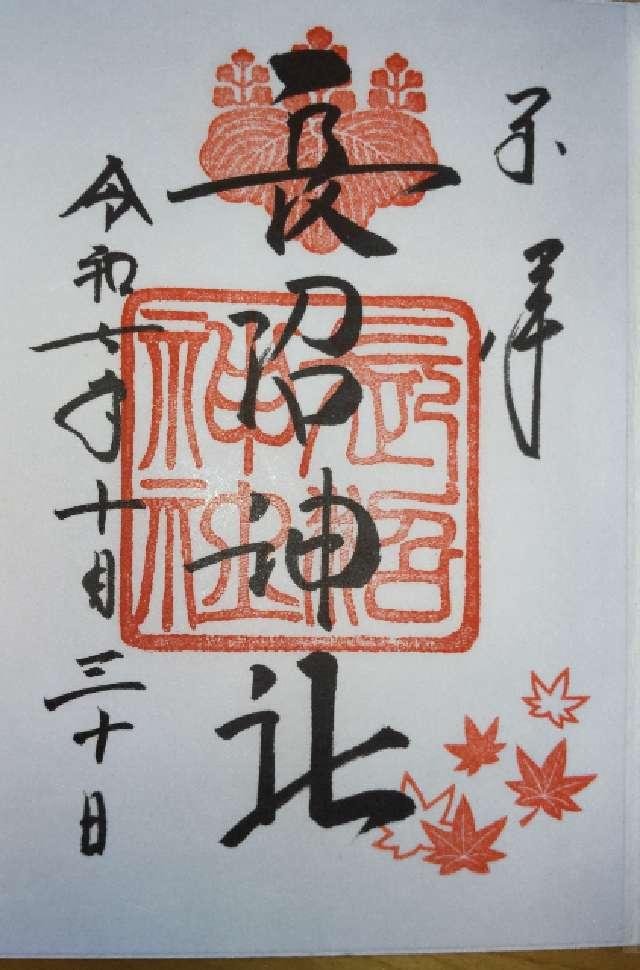 奉拝
長沼神社
長沼
神社
令和七年十月三十日